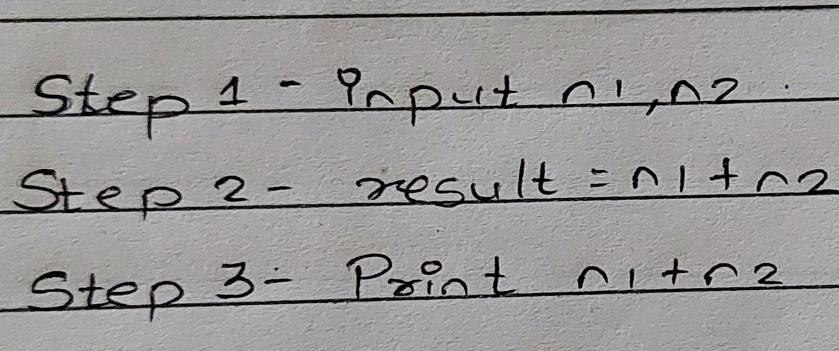 Step 1 - Input n1, n2.
Step 2 - result = n1 + n2
Step 3 - Print n1 + n2